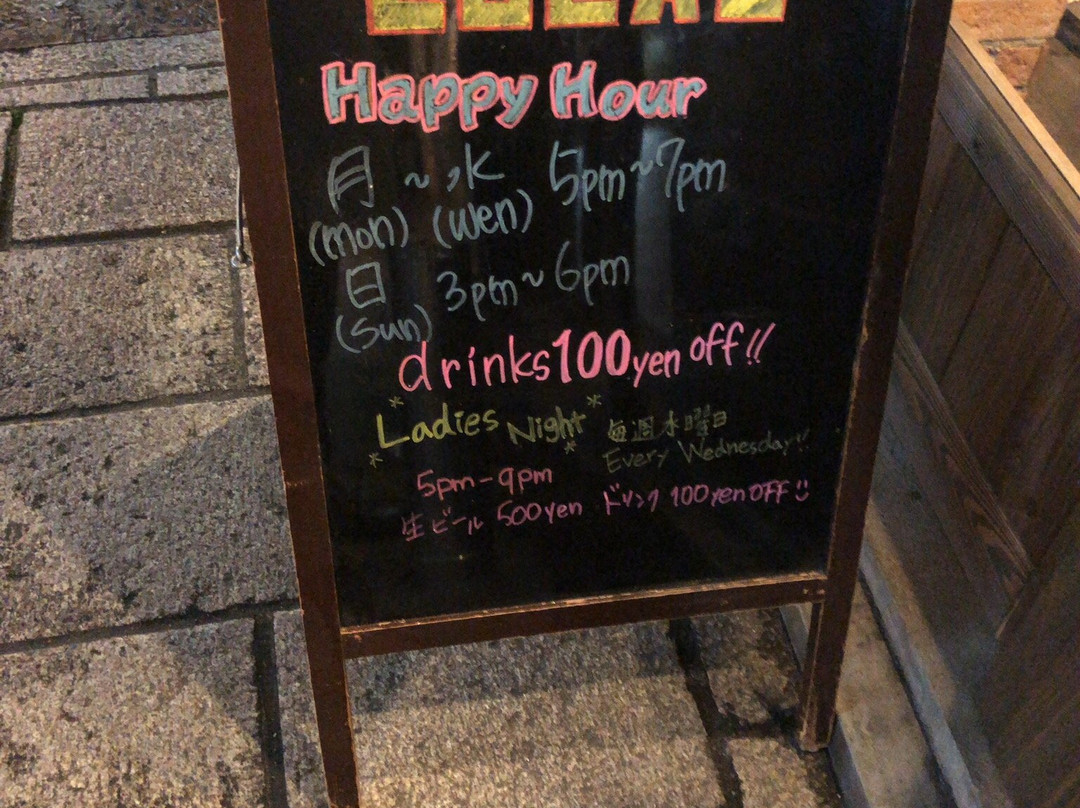 Happy Hour
月 ~ 水 5pm~7pm
(mon) (wen)
日 3pm~6pm
(sun)
drinks 100yen off!!
*Ladies Night* 毎週水曜日
Every Wednesday!!
5pm-9pm
生ビール 500yen ドリンク 100yen OFF